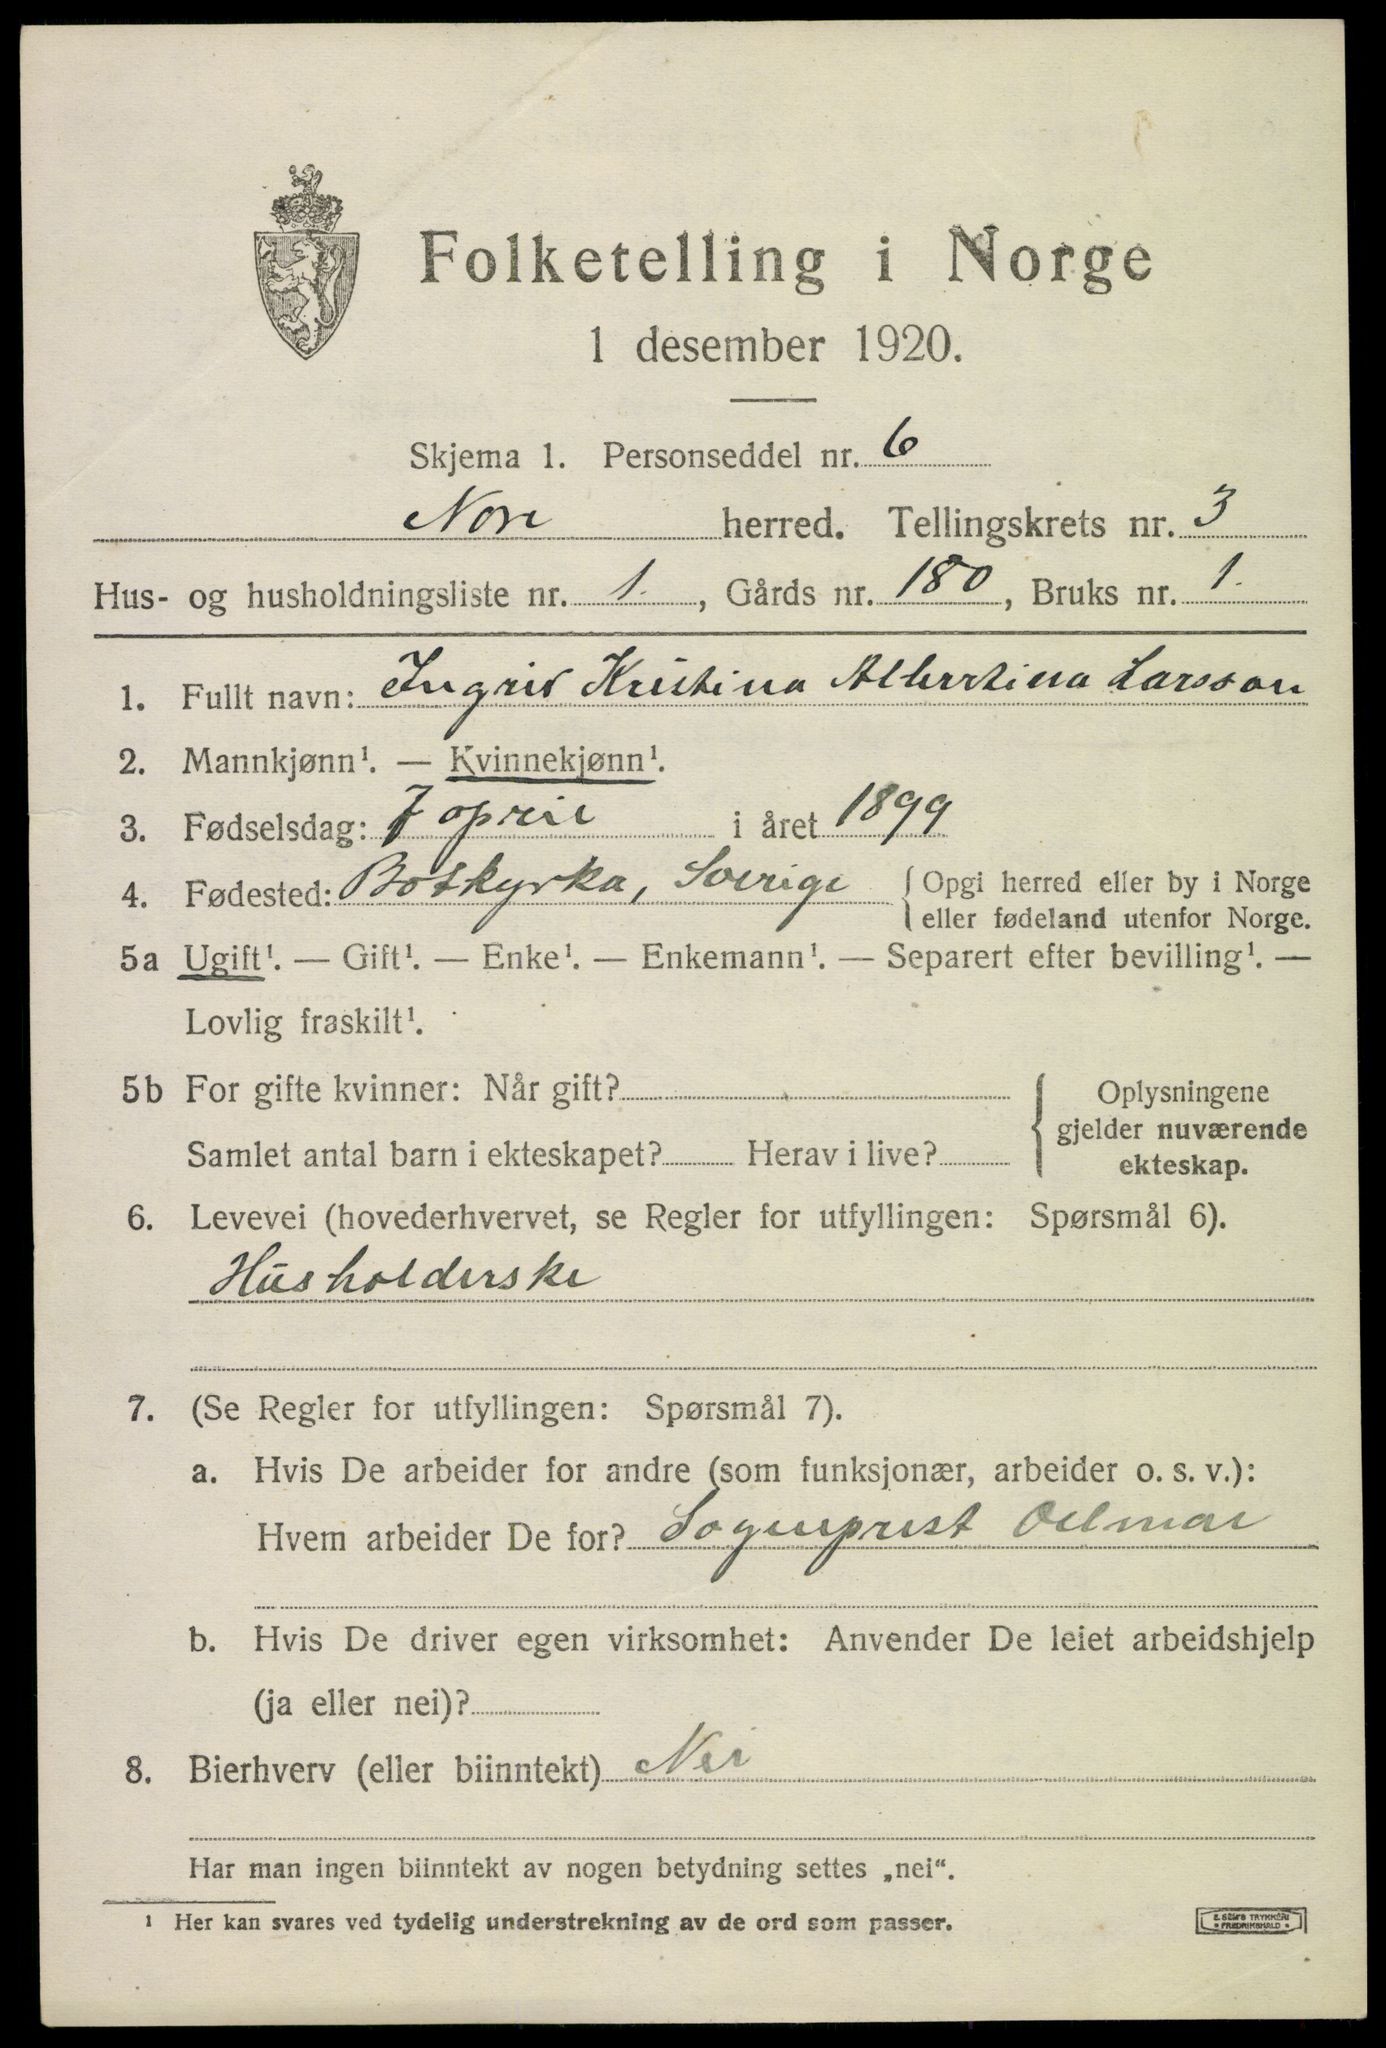 Folketelling i Norge
1 desember 1920.
Skjema 1. Personseddel nr. 6
Nore herred. Tellingskrets nr. 3
Hus- og husholdningsliste nr. 1., Gårds nr. 180, Bruks nr. 1.
1. Fullt navn: Ingrid Kristina Albertina Larsson
2. Mannkjønn¹. — Kvinnekjønn¹.
3. Fødselsdag: 7 april i året 1899
4. Fødested: Botkyrka, Sverige { Opgi herred eller by i Norge
eller fødeland utenfor Norge.
5a Ugift¹. — Gift¹. — Enke¹. — Enkemann¹. — Separert efter bevilling¹. —
Lovlig fraskilt¹.
5b For gifte kvinner: Når gift? { Oplysningene
gjelder nuværende
Samlet antal barn i ekteskapet? Herav i live? ekteskap.
6. Levevei (hovederhvervet, se Regler for utfyllingen: Spørsmål 6).
Husholderske
7. (Se Regler for utfyllingen: Spørsmål 7).
a. Hvis De arbeider for andre (som funksjonær, arbeider o. s. v.):
Hvem arbeider De for? Sogneprest
b. Hvis De driver egen virksomhet: Anvender De leiet arbeidshjelp
(ja eller nei)?
8. Bierhverv (eller biinntekt) Nei
Har man ingen biinntekt av nogen betydning settes „nei“.
¹ Her kan svares ved tydelig understrekning av de ord som passer.
E. SEM'S TRYKKERI
FREDRIKSHALD